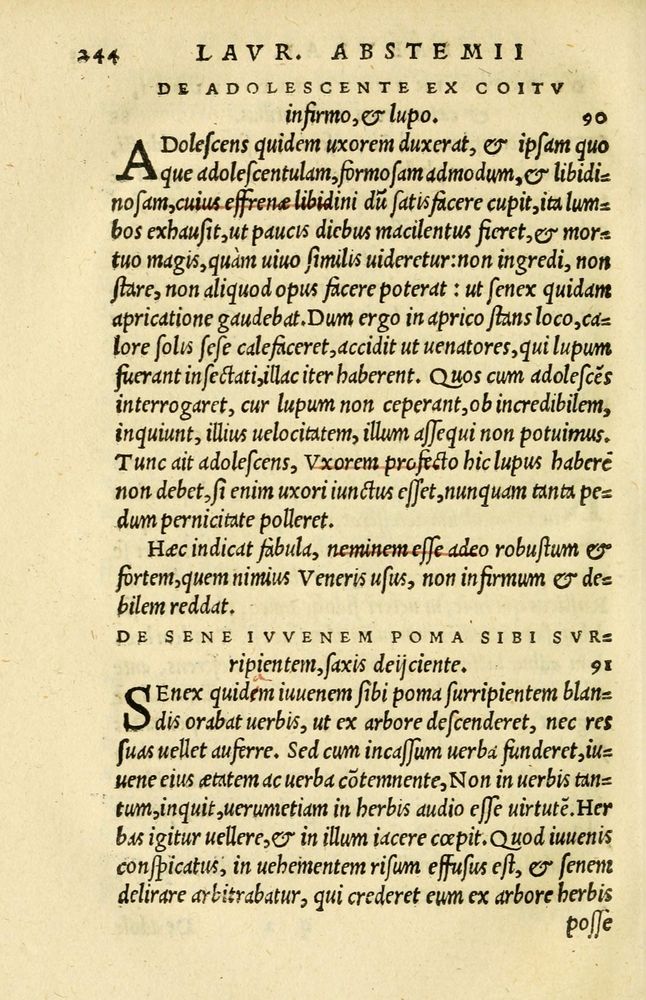 244 LAVR. ABSTEMII
DE ADOLESCENTE EX COITV
infirmo, & lupo. 90
ADoleſcens quidem uxorem duxerat, & ipſam quo
que adoleſcentulam, formoſam admodum, & libidi=
noſam, cuius effrenæ libidini dū ſatisfacere cupit, ita lum=
bos exhauſit, ut paucis diebus macilentus fieret, & mor=
tuo magis, quàm uiuo ſimilis uideretur: non ingredi, non
ſtare, non aliquod opus facere poterat : ut ſenex quidam
apricatione gaudebat. Dum ergo in aprico ſtans loco, ca=
lore ſolis ſeſe calefaceret, accidit ut uenatores, qui lupum
fuerant inſectati, illac iter haberent. Quos cum adoleſcēs
interrogaret, cur lupum non ceperant, ob incredibilem,
inquiunt, illius uelocitatem, illum aſſequi non potuimus.
Tunc ait adoleſcens, Vxorem profecto hic lupus haberē
non debet, ſi enim uxori iunctus eſſet, nunquam tanta pe=
dum pernicitate polleret.
Hæc indicat fabula, neminem eſſe adeo robuſtum &
fortem, quem nimius Veneris uſus, non infirmum & de=
bilem reddat.
DE SENE IVVENEM POMA SIBI SVR=
ripientem, ſaxis deijciente. 91
SEnex quidem iuuenem ſibi poma ſurripientem blan=
dis orabat uerbis, ut ex arbore deſcenderet, nec res
ſuas uellet auferre. Sed cum incaſſum uerba funderet, iu=
uene eius ætatem ac uerba cōtemnente, Non in uerbis tan=
tum, inquit, uerumetiam in herbis audio eſſe uirtutē. Her
bas igitur uellere, & in illum iacere cœpit. Quod iuuenis
conſpicatus, in uehementem riſum effuſus eſt, & ſenem
delirare arbitrabatur, qui crederet eum ex arbore herbis
poſſe